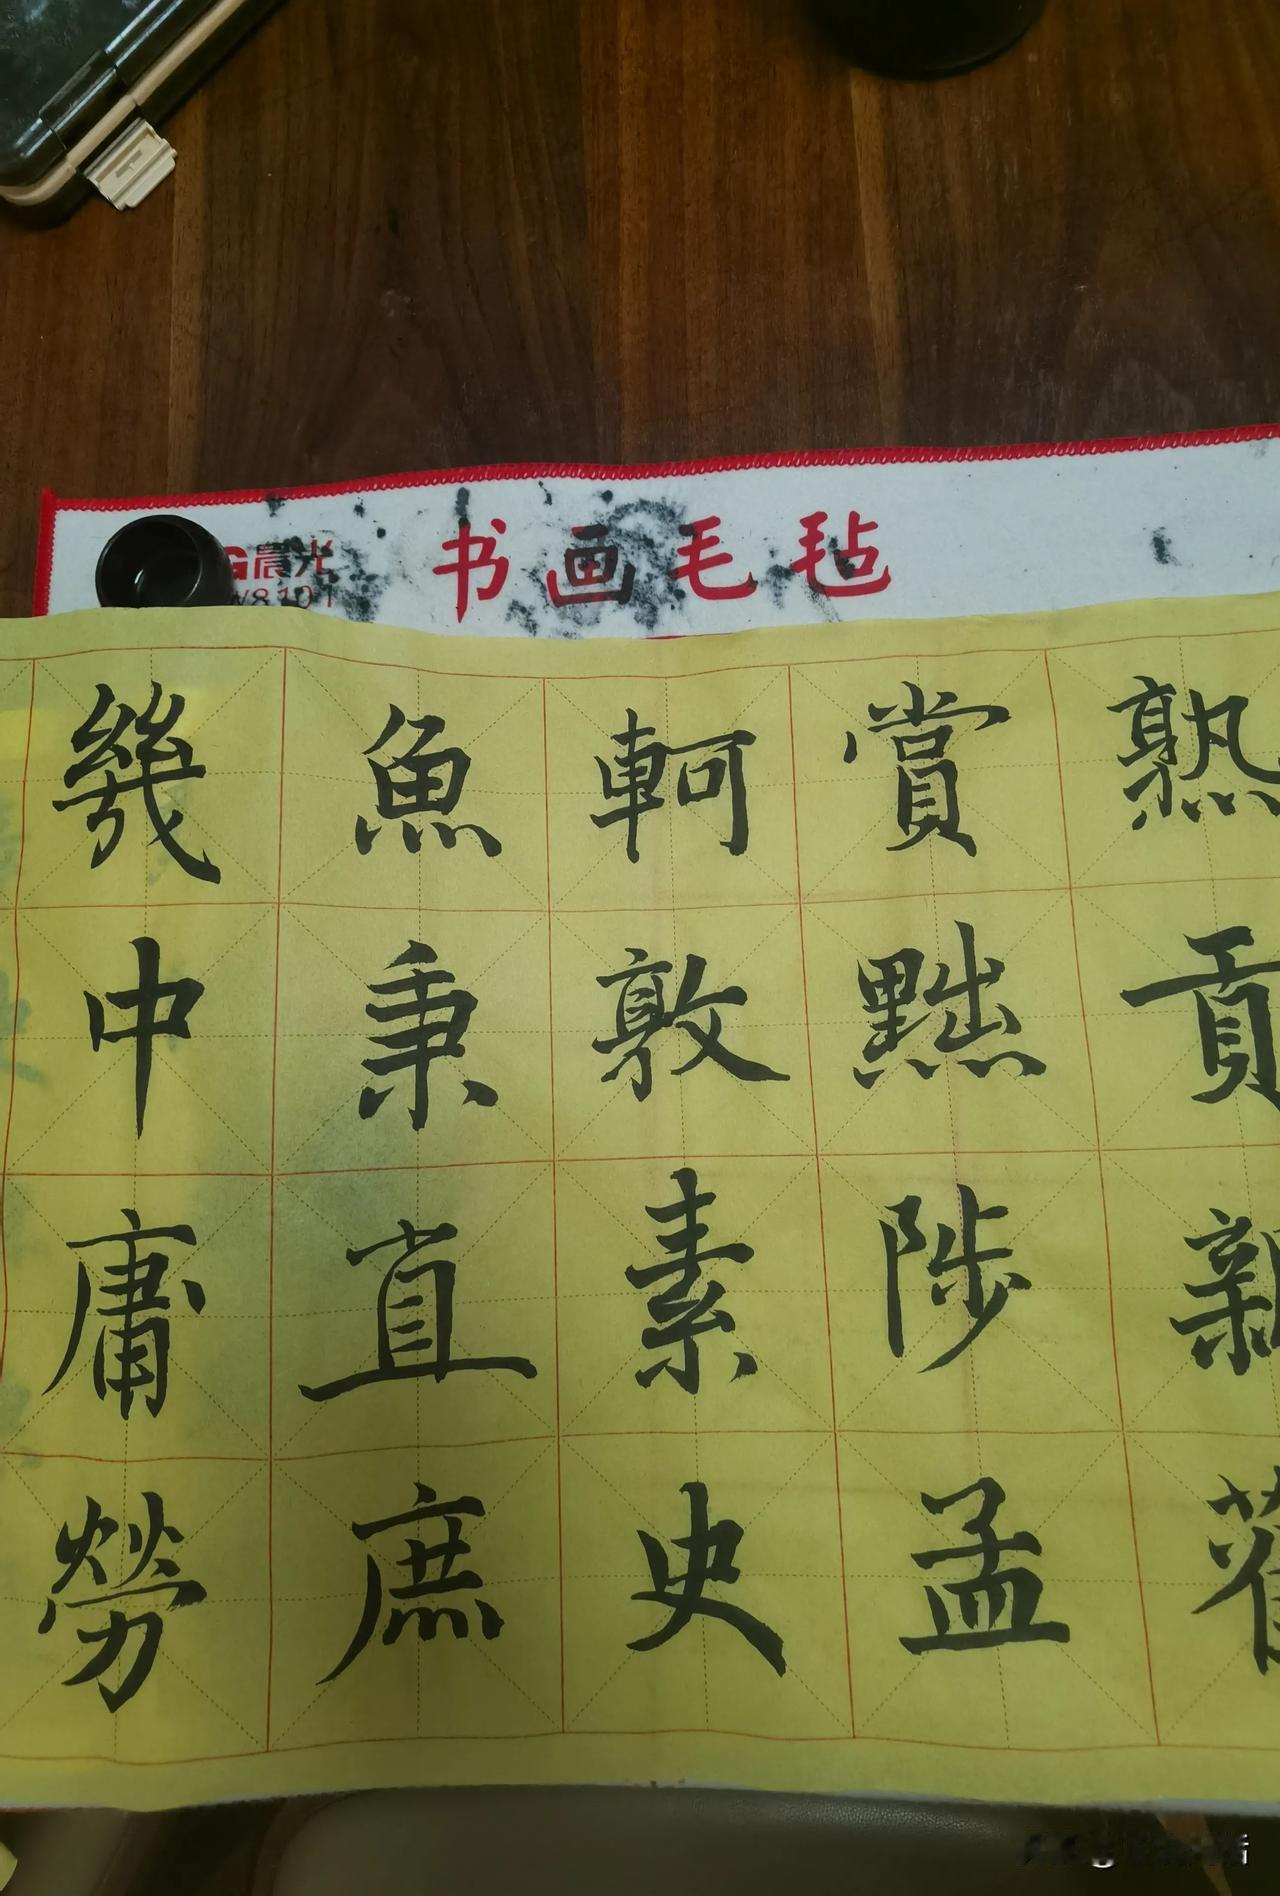 晨光
书画毛毡
熟貢新舊
賞黜陟孟
軻敦素史
魚秉直庶
幾中庸勞